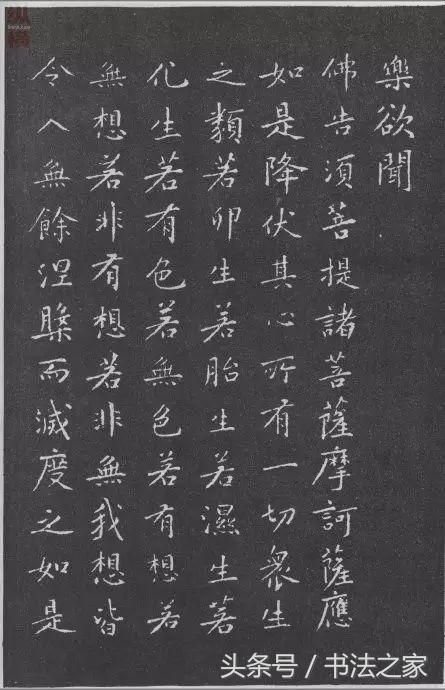 樂欲聞
佛告須菩提諸菩薩摩訶薩應
如是降伏其心所有一切衆生
之類若卵生若胎生若濕生若
化生若有色若無色若有想若
無想若非有想若非無我想皆
令入無餘涅槃而滅度之如是
头条号 / 书法之家